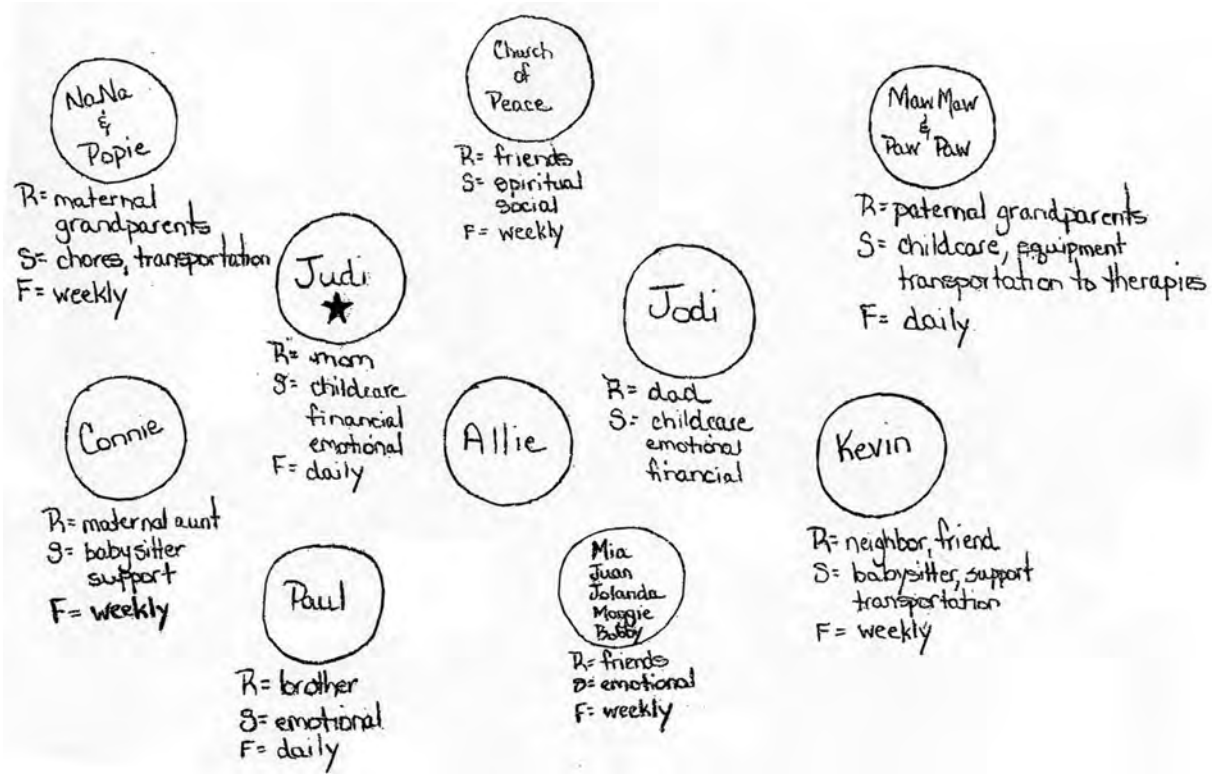 NaNa
&
Popie
R= maternal
grandparents
S= chores, transportation
F= weekly
Church
of
Peace
R= friends
S= spiritual
social
F= weekly
MawMaw
&
Paw Paw
R= paternal grandparents
S= childcare, equipment
transportation to therapies
F= daily
Judi
R= mom
S= childcare
financial
emotional
F= daily
Jodi
R= dad
S= childcare
emotional
financial
Connie
R= maternal aunt
S= babysitter
support
F= weekly
Allie
Kevin
R= neighbor, friend
S= babysitter, support
transportation
F= weekly
Paul
R= brother
S= emotional
F= daily
Mia
Juan
Jolanda
Margie
Bobby
R= friends
S= emotional
F= weekly